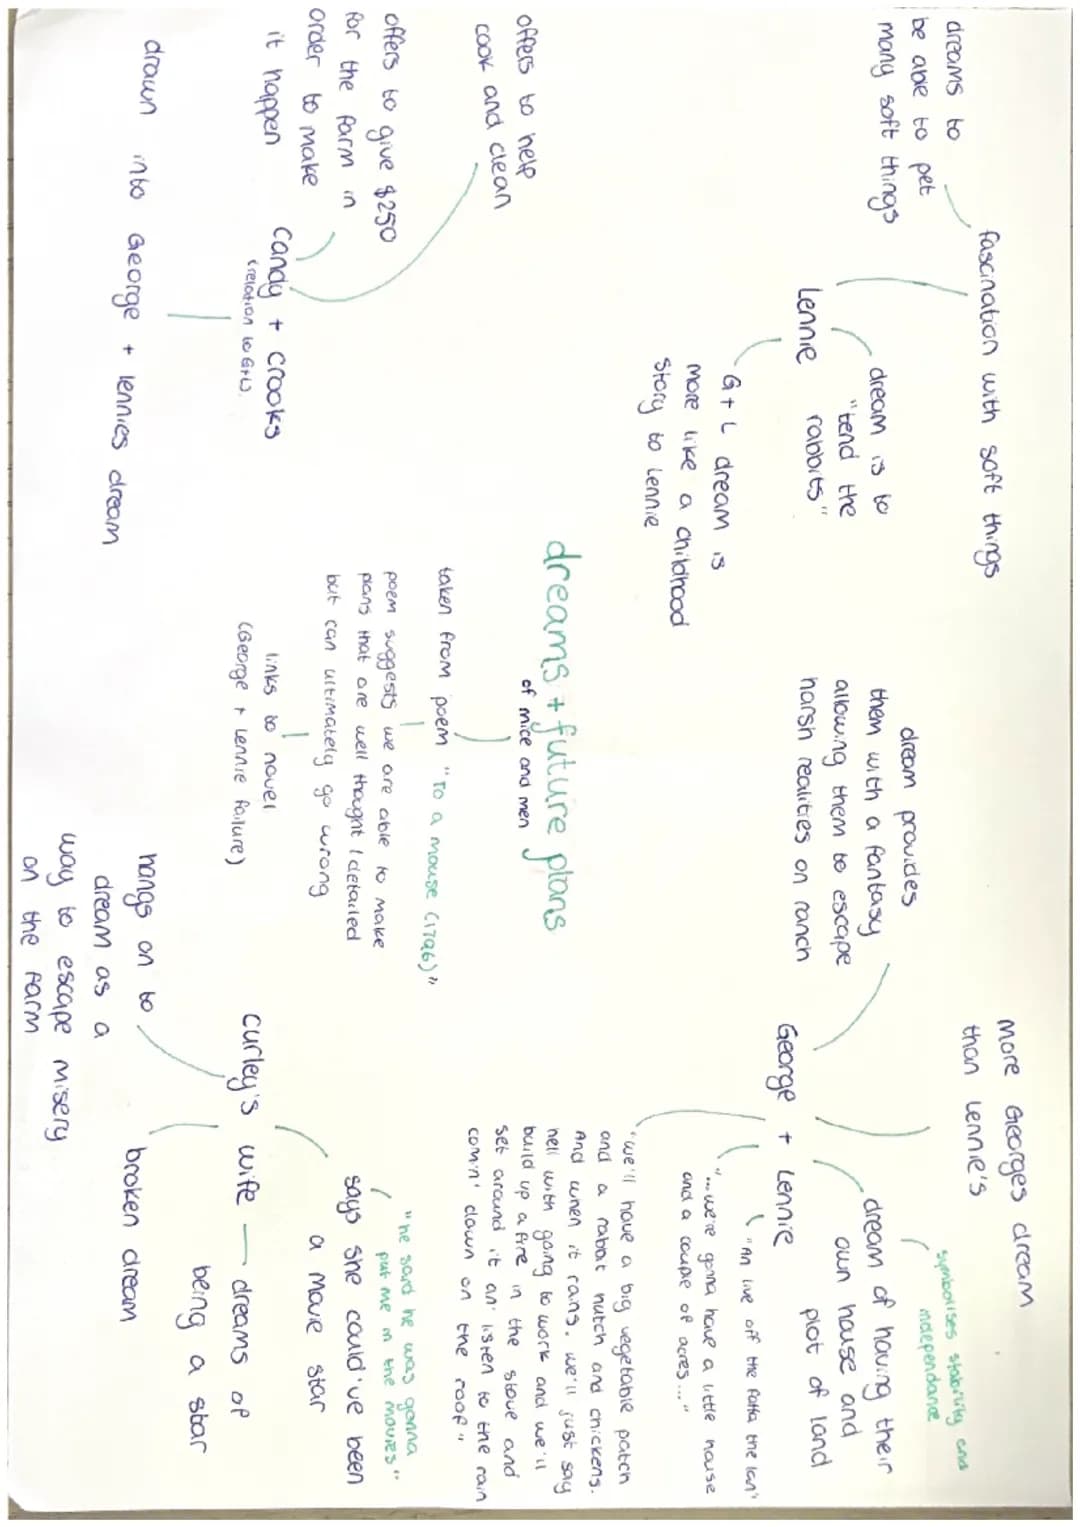 dreams + future plans
of mice and men
taken from poem "To a mouse (1796)"
poem suggests we are able to make
plans that are well thought / detailed
but can ultimately go wrong
links to novel
(George + Lennie failure)
fascination with soft things
dreams to
be able to pet
many soft things
Lennie
dream is to
"tend the
rabbits"
G + L dream is
more like a childhood
story to Lennie
dream provides
them with a fantasy
allowing them to escape
harsh realities on ranch
George + Lennie
More Georges dream
than Lennie's
symbolises stability and
independance
dream of having their
own house and
plot of land
"An live off the fatta the lan'
"...we're gonna have a little house
and a couple of acres..."
"we'll have a big vegetable patch
and a rabbit hutch and chickens.
And when it rains, we'll just say
hell with going to work and we'll
build up a fire in the stove and
set around it an' listen to the rain
comin' down on the roof"
offers to help
cook and clean
offers to give $250
for the farm in
order to make
it happen
Candy + crooks
(relation to G+L)
drawn into George + lennies dream
curley's wife
dreams of
being a star
says she could've been
a movie star
"he said he was gonna
put me in the movies"
broken dream
hangs on to
dream as a
way to escape misery
on the farm